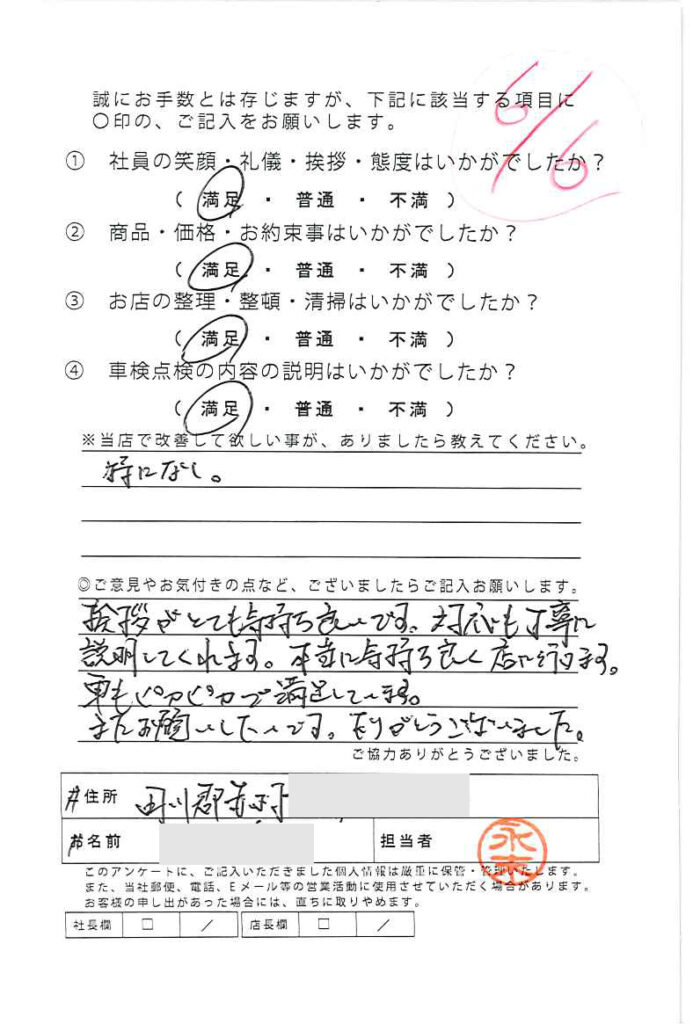 6/6
誠にお手数とは存じますが、下記に該当する項目に
〇印の、ご記入をお願いします。
① 社員の笑顔・礼儀・挨拶・態度はいかがでしたか？
（ 満足 ・ 普通 ・ 不満 ）
② 商品・価格・お約束事はいかがでしたか？
（ 満足 ・ 普通 ・ 不満 ）
③ お店の整理・整頓・清掃はいかがでしたか？
（ 満足 ・ 普通 ・ 不満 ）
④ 車検点検の内容の説明はいかがでしたか？
（ 満足 ・ 普通 ・ 不満 ）
※当店で改善して欲しい事が、ありましたら教えてください。
特になし。
◎ご意見やお気付きの点など、ございましたらご記入お願いします。
挨拶がとても気持ち良いです。対応も丁寧に
説明してくれます。本当に気持ち良く店に行けます。
車もピカピカで満足しています。
またお願いしたいです。ありがとうございました。
ご協力ありがとうございました。
住所 田川郡
名前
担当者 永末
このアンケートに、ご記入いただきました個人情報は厳重に保管・管理いたします。
また、当社郵便、電話、Eメール等の営業活動に使用させていただく場合があります。
お客様の申し出があった場合には、直ちに取りやめます。
社長欄 □ ／ 店長欄 □ ／